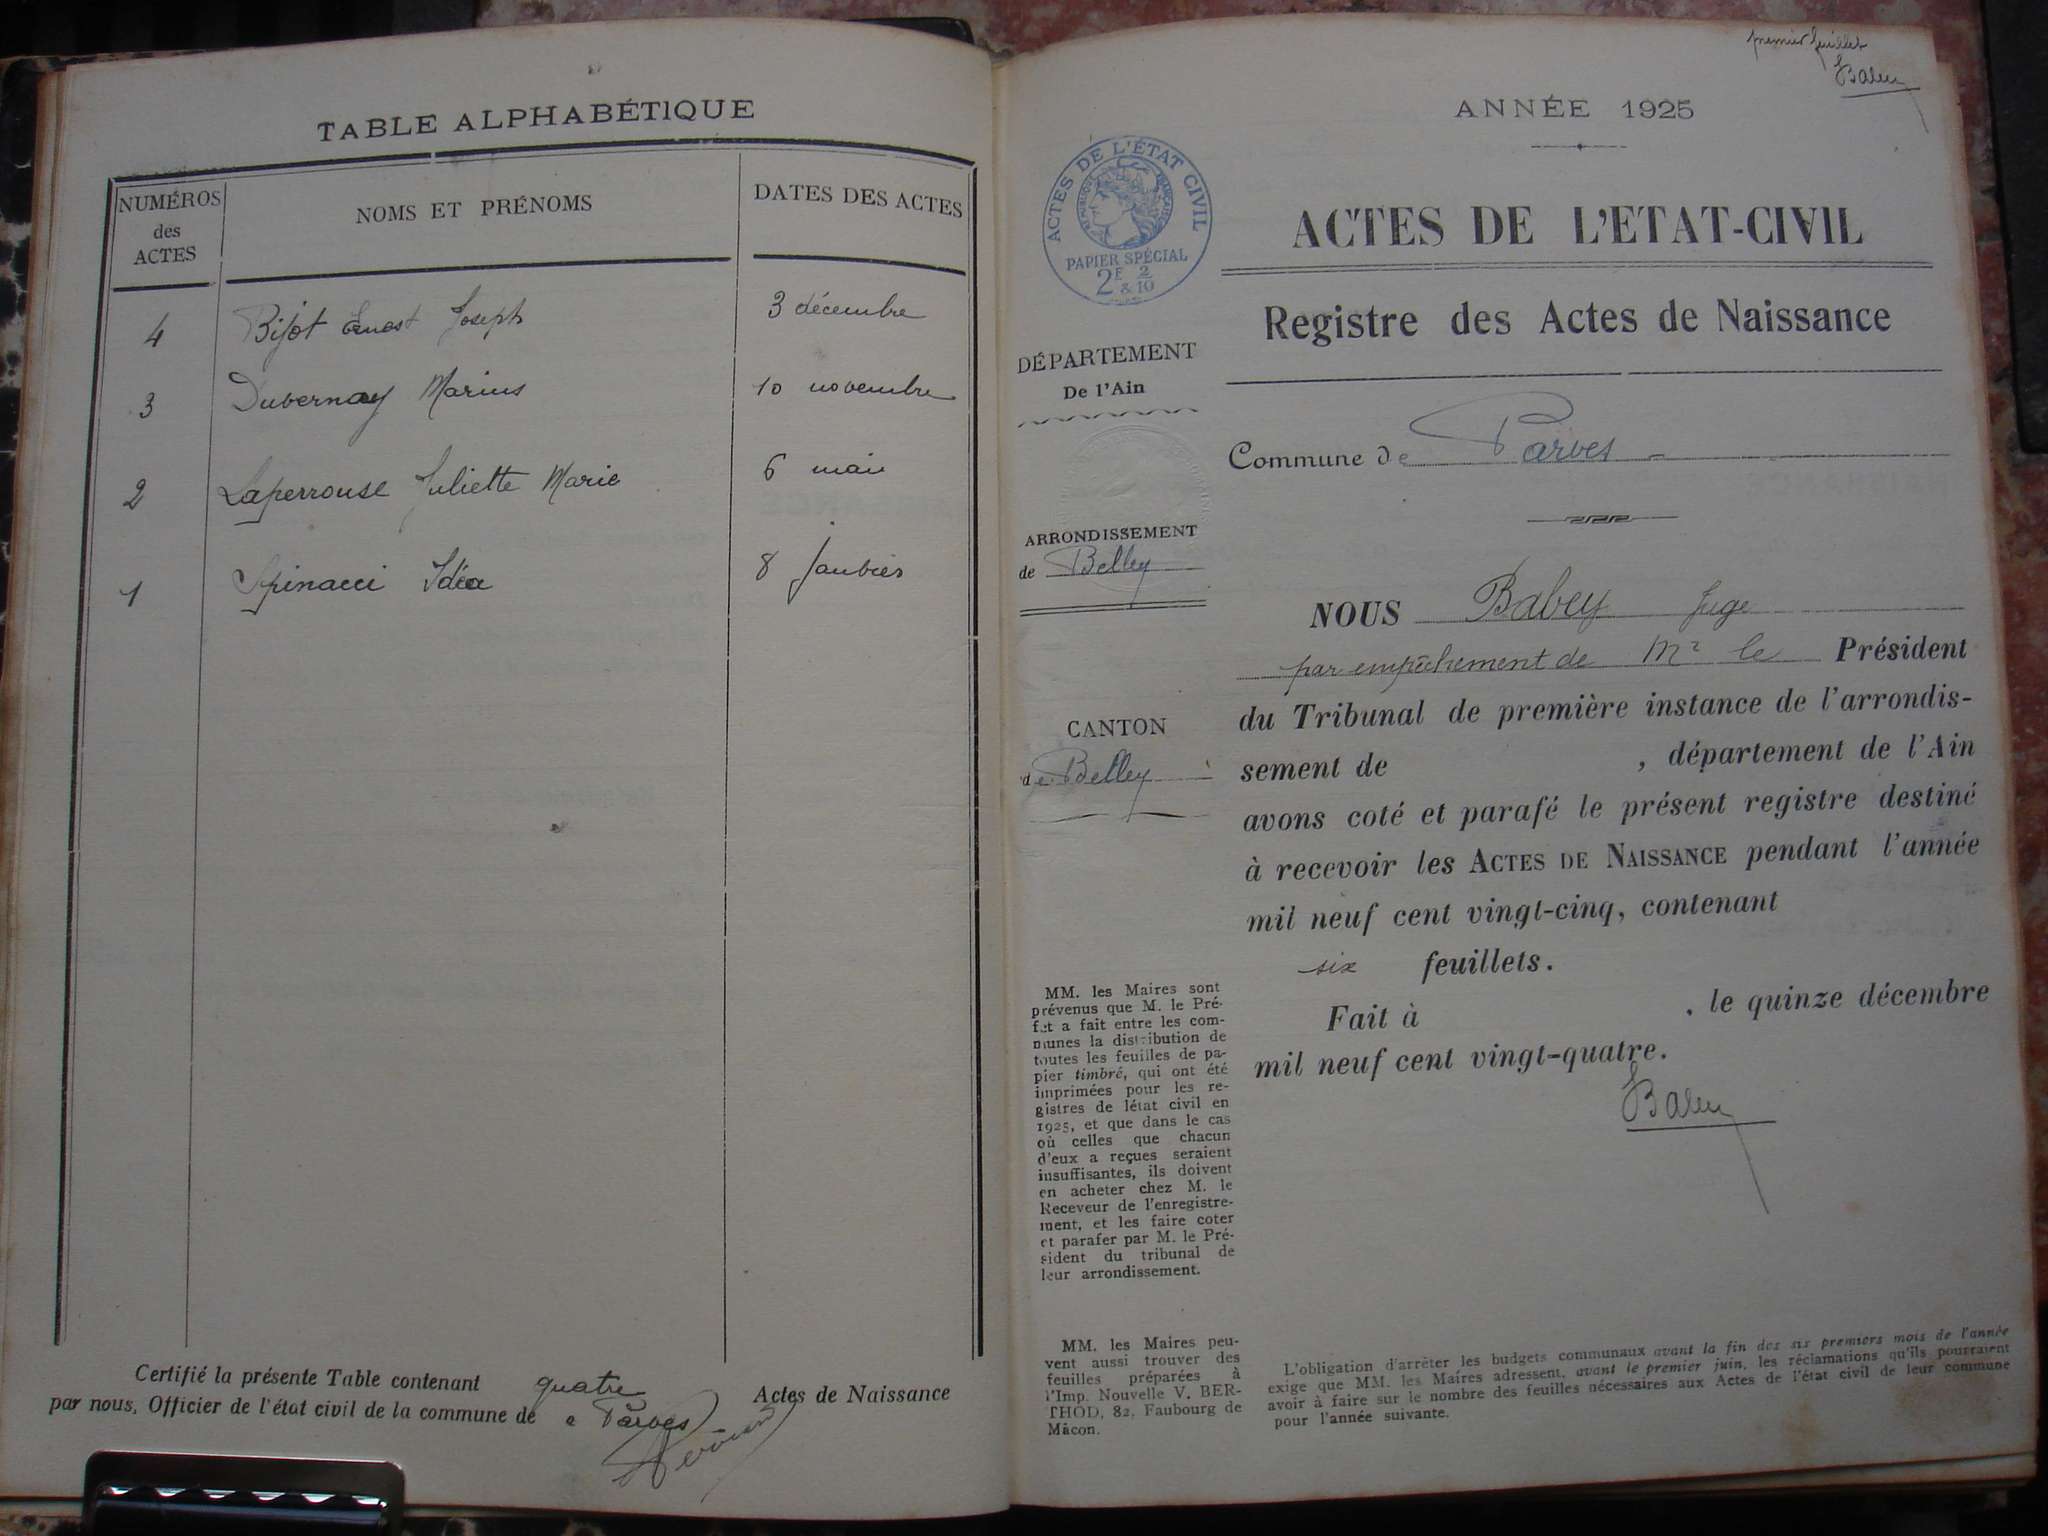 TABLE ALPHABÉTIQUE
NUMÉROS des ACTES
NOMS ET PRÉNOMS
DATES DES ACTES
4 Bijot Ernest Joseph 3 décembre
3 Duvernay Marius 10 novembre
2 Laperrouse Juliette Marie 6 mai
1 Spinacci Idéa 8 janvier
Certifié la présente Table contenant quatre Actes de Naissance
par nous, Officier de l'état civil de la commune de Parves
premier feuillet
Babey
ANNÉE 1925
ACTES DE L'ÉTAT CIVIL
RÉPUBLIQUE FRANÇAISE
PAPIER SPÉCIAL
2F & 2/10
ACTES DE L'ETAT-CIVIL
Registre des Actes de Naissance
DÉPARTEMENT
De l'Ain
Commune de Parves
ARRONDISSEMENT
de Belley
CANTON
de Belley
NOUS Babey Juge
par empêchement de Mr le Président
du Tribunal de première instance de l'arrondis-
sement de , département de l'Ain
avons coté et parafé le présent registre destiné
à recevoir les ACTES DE NAISSANCE pendant l'année
mil neuf cent vingt-cinq, contenant
six feuillets.
Fait à , le quinze décembre
mil neuf cent vingt-quatre.
Babey
MM. les Maires sont
prévenus que M. le Pré-
fet a fait entre les com-
munes la distribution de
toutes les feuilles de pa-
pier timbré, qui ont été
imprimées pour les re-
gistres de létat civil en
1925, et que dans le cas
où celles que chacun
d'eux a reçues seraient
insuffisantes, ils doivent
en acheter chez M. le
Receveur de l'enregistre-
ment, et les faire coter
et parafer par M. le Pré-
sident du tribunal de
leur arrondissement.
MM. les Maires peu-
vent aussi trouver des
feuilles préparées à
l'Imp. Nouvelle V. BER-
THOD, 82, Faubourg de
Mâcon.
L'obligation d'arrêter les budgets communaux avant la fin des six premiers mois de l'année
exige que MM. les Maires adressent, avant le premier juin, les réclamations qu'ils pourraient
avoir à faire sur le nombre des feuilles nécessaires aux Actes de l'état civil de leur commune
pour l'année suivante.